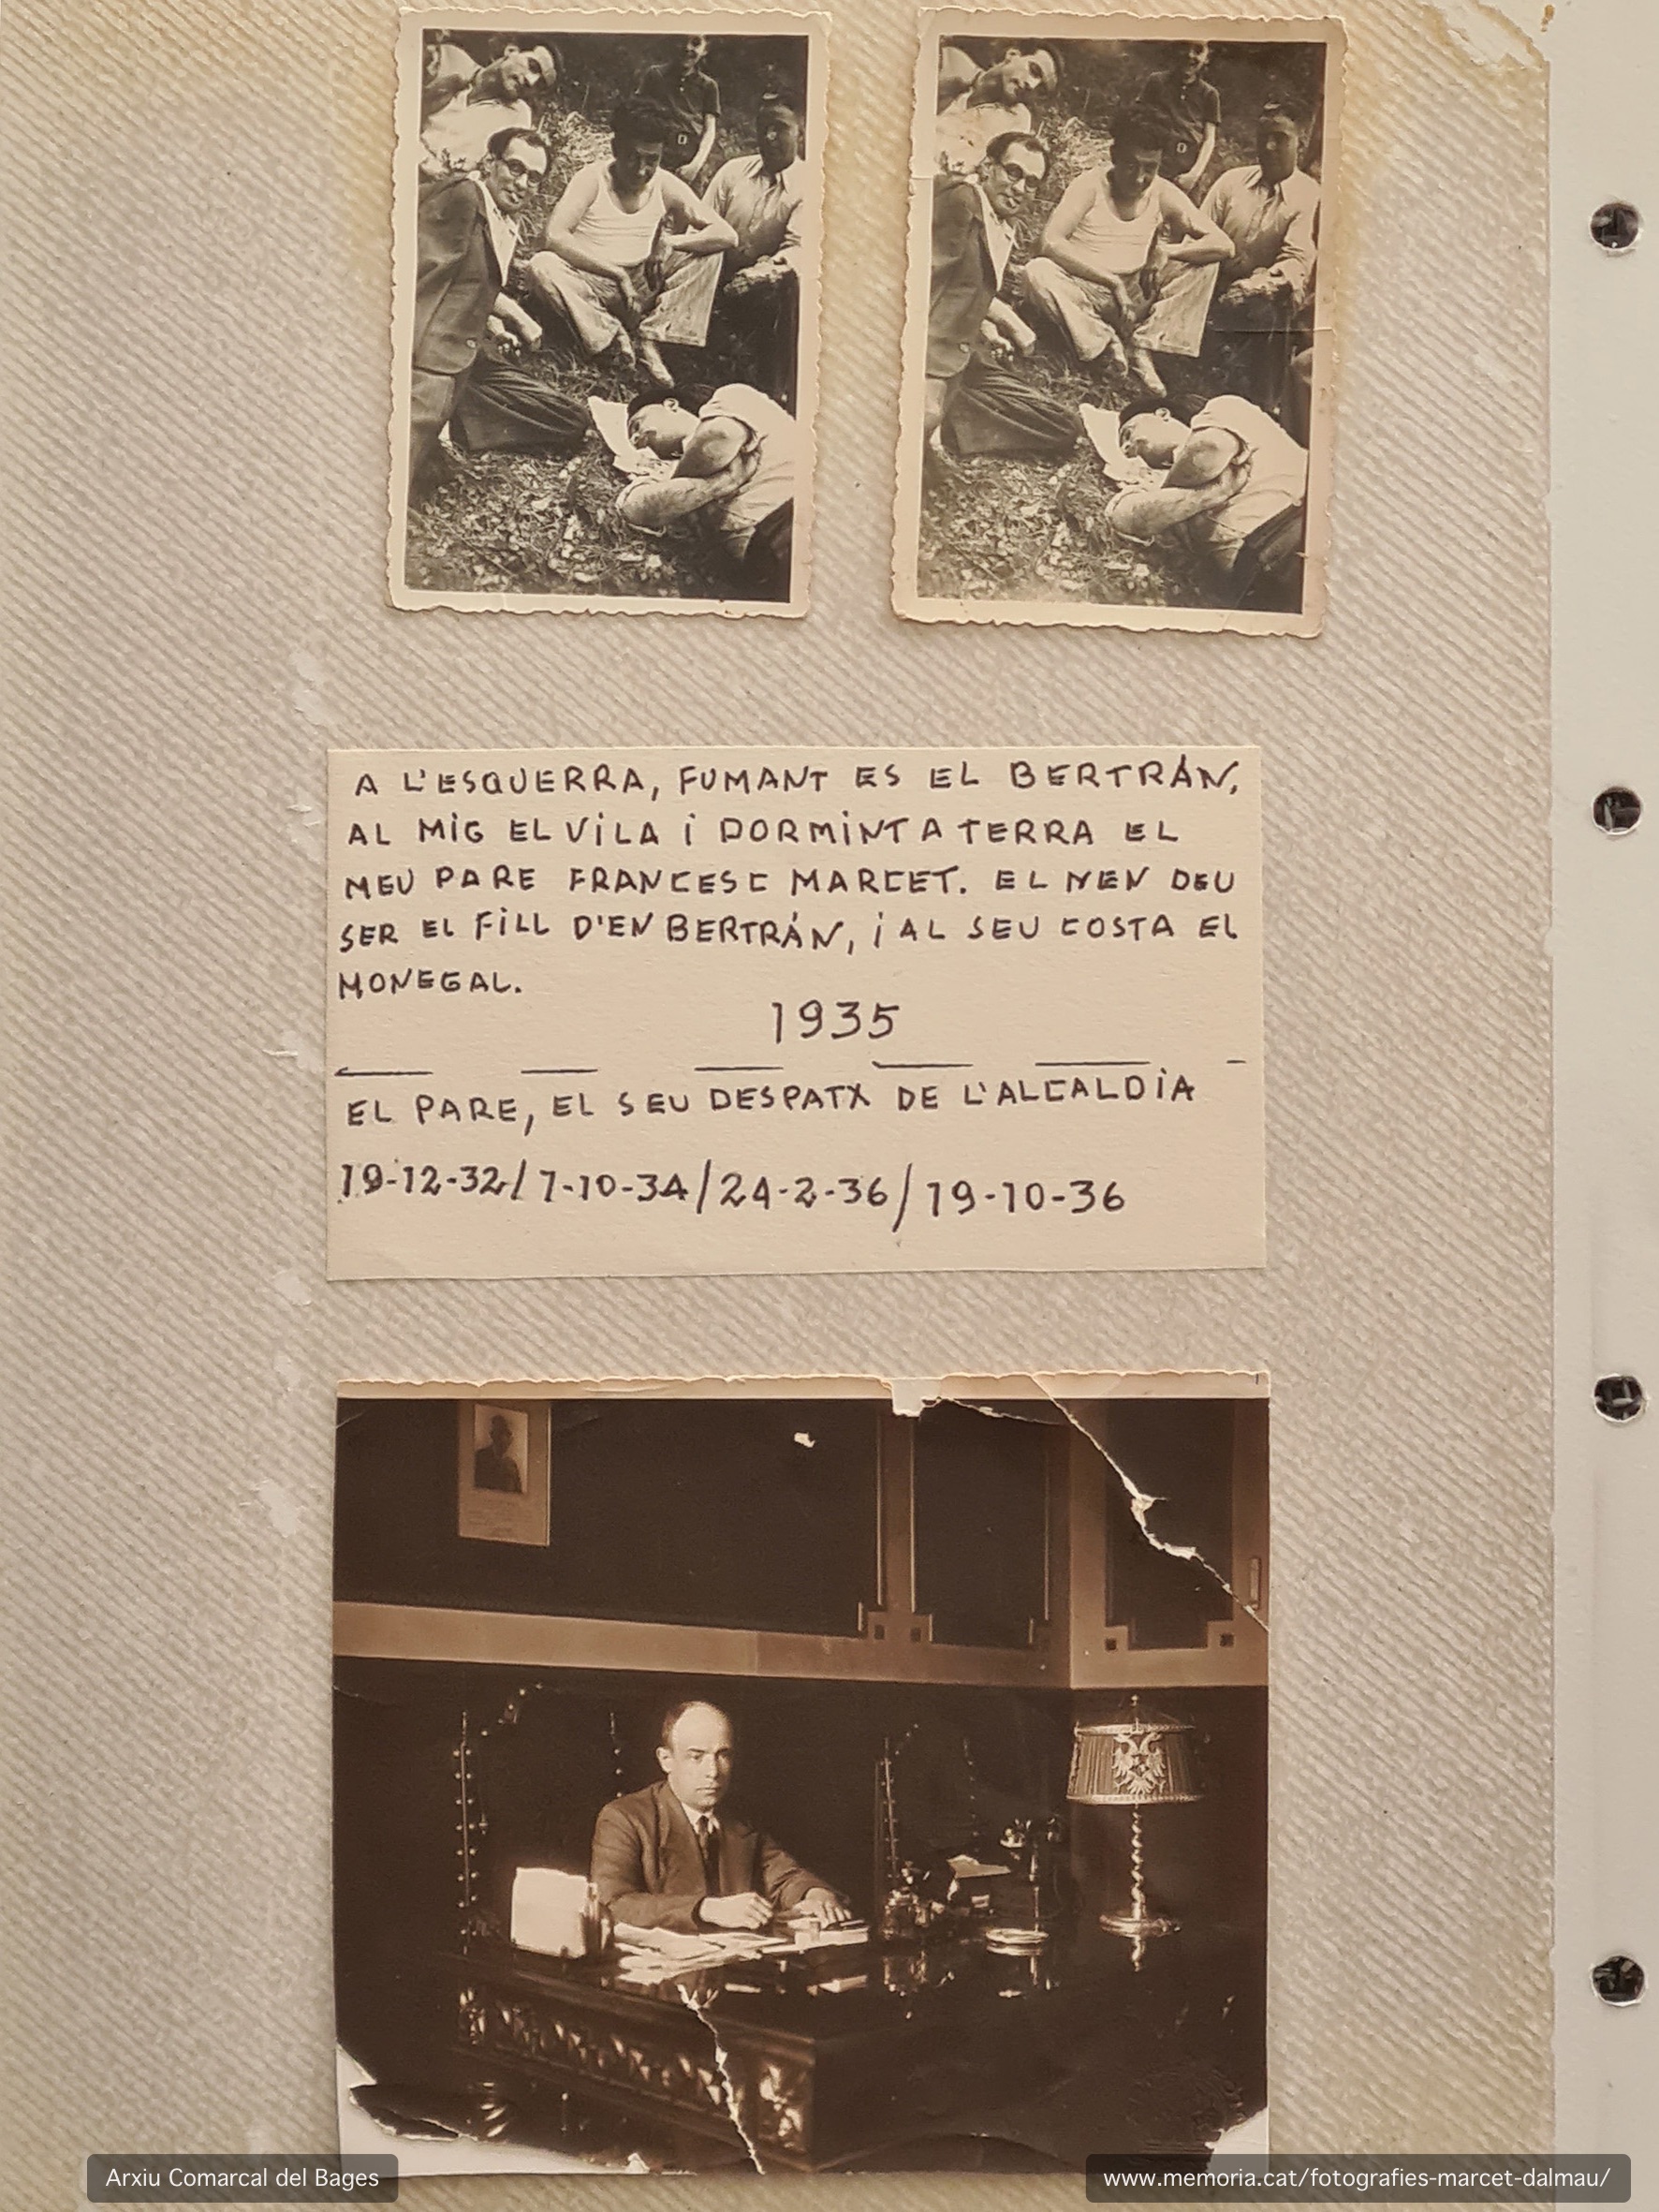 A L'ESQUERRA, FUMANT ES EL BERTRÁN,
AL MIG EL VILA I DORMINT A TERRA EL
MEU PARE FRANCESC MARCET. EL NEN DEU
SER EL FILL D'EN BERTRÁN, I AL SEU COSTA EL
MONEGAL.
1935
EL PARE, EL SEU DESPATX DE L'ALCALDIA
19-12-32/7-10-34/24-2-36/19-10-36
Arxiu Comarcal del Bages
www.memoria.cat/fotografies-marcet-dalmau/